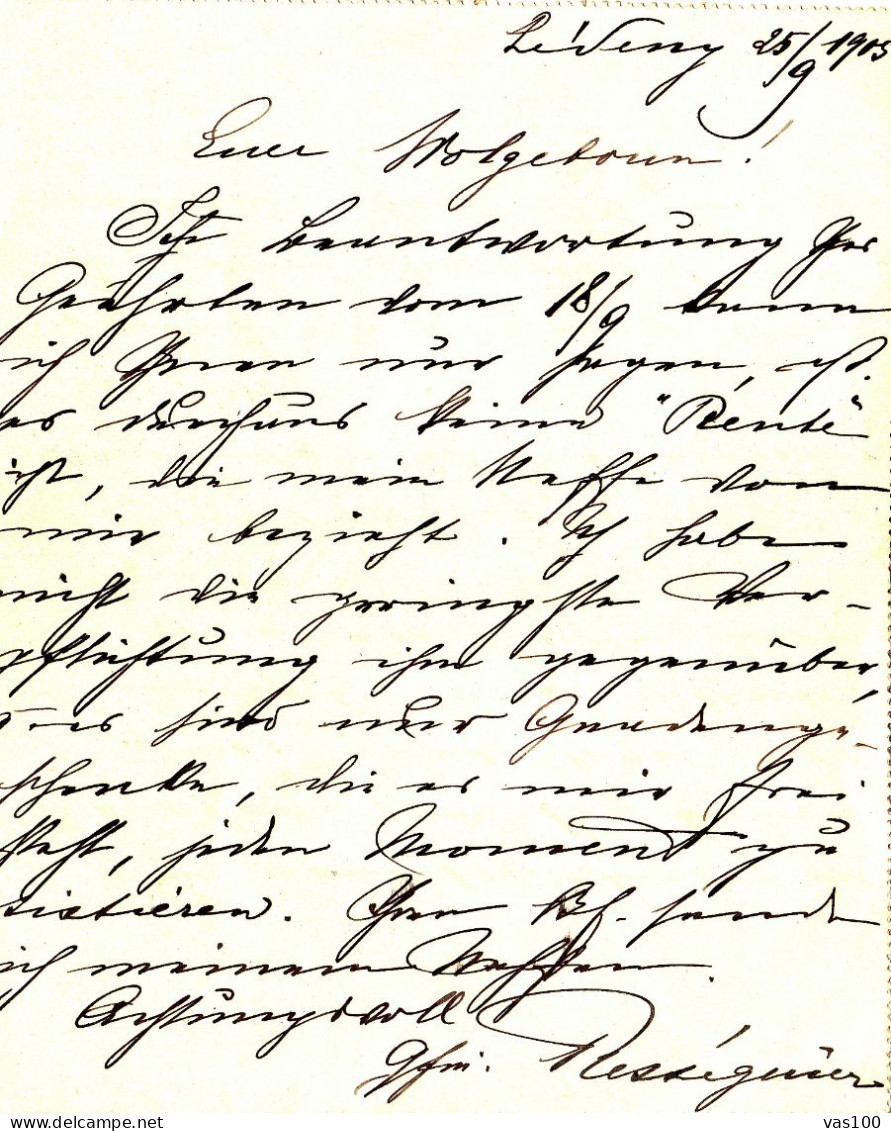 25/9 1903
Euer Wolgeboren!
In Beantwortung Ihres
Geehrten vom 18/9 kann
ich Ihnen nur sagen, dß.
es durchaus keine "Rente"
ist, die mein Neffe von
mir bezieht. Ich habe
nicht die geringste Ver-
pflichtung ihm gegenüber,
es sind nur Gnadenge-
schenke, die es mir frei
steht, jeden Moment zu
sistieren. Ihren Bf. sende
ich meinem Neffen.
Achtungsvoll
Gfin. Rességuier
DELCAMPE.NET
vas100